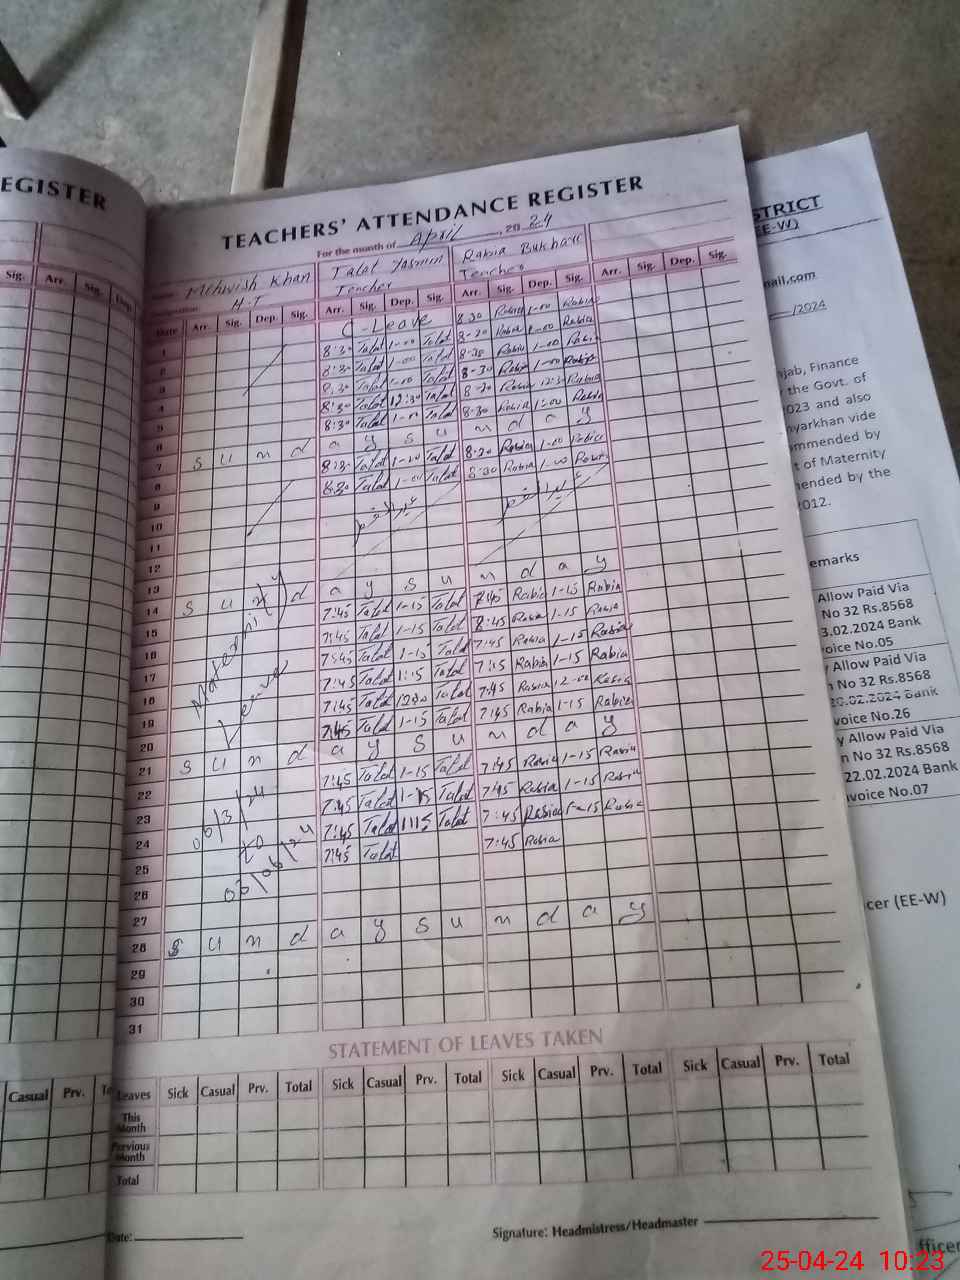 EGISTER
TEACHERS' ATTENDANCE REGISTER
For the month of April, 2024
Mehvish Khan Talat Yasmin Rabia Bukhari
H.T Teacher Teacher
Sig. Arr. Sig. Dep.
Date Arr. Sig. Dep. Sig. Arr. Sig. Dep. Sig. Arr. Sig. Dep. Sig. Arr. Sig. Dep. Sig.
1 C-Leave 8.30 Rabia 1-00 Rabia
2 8:30 Talat 1-00 Talat 8-30 Rabia 1-00 Rabia
3 8:30 Talat 1-00 Talat 8-30 Rabia 1-00 Rabia
4 8:30 Talat 1-00 Talat 8-30 Rabia 1-00 Rabia
5 8:30 Talat 12:30 Talat 8-30 Rabia 12:30 Rabia
6 8:30 Talat 1-00 Talat 8-30 Rabia 1:00 Rabia
7 S u n d a y S u n d a y
8 8:30 Talat 1-00 Talat 8-30 Rabia 1-00 Rabia
9 8:30 Talat 1-00 Talat 8-30 Rabia 1-00 Rabia
10
11
12
13
14 S u n d a y S u n d a y
15 7:45 Talat 1-15 Talat 7:45 Rabia 1-15 Rabia
16 7:45 Talat 1-15 Talat 8:45 Rabia 1-15 Rabia
17 7:45 Talat 1-15 Talat 7:45 Rabia 1-15 Rabia
18 7:45 Talat 1:15 Talat 7:45 Rabia 1-15 Rabia
19 7:45 Talat 12:00 Talat 7:45 Rabia 12-00 Rabia
20 7:45 Talat 1-15 Talat 7:45 Rabia 1-15 Rabia
21 S u n d a y S u n d a y
22 7:45 Talat 1-15 Talat 7:45 Rabia 1-15 Rabia
23 7:45 Talat 1-15 Talat 7:45 Rabia 1-15 Rabia
24 7:45 Talat 1:15 Talat 7:45 Rabia 1-15 Rabia
25 7:45 Talat 7:45 Rabia
26
27
28 S u n d a y S u n d a y
29
30
31
Maternity
Leave
06/3/24
to
03/06/24
STATEMENT OF LEAVES TAKEN
Casual Prv.
Leaves Sick Casual Prv. Total Sick Casual Prv. Total Sick Casual Prv. Total Sick Casual Prv. Total
This Month
Previous Month
Total
Date:
Signature: Headmistress/Headmaster
STRICT
EE-W)
mail.com
/2024
njab, Finance
the Govt. of
023 and also
nyarkhan vide
ommended by
t of Maternity
ended by the
012.
emarks
Allow Paid Via
No 32 Rs.8568
3.02.2024 Bank
oice No.05
Allow Paid Via
n No 32 Rs.8568
20.02.2024 Bank
voice No.26
y Allow Paid Via
n No 32 Rs.8568
22.02.2024 Bank
nvoice No.07
cer (EE-W)
fficer
25-04-24 10:23